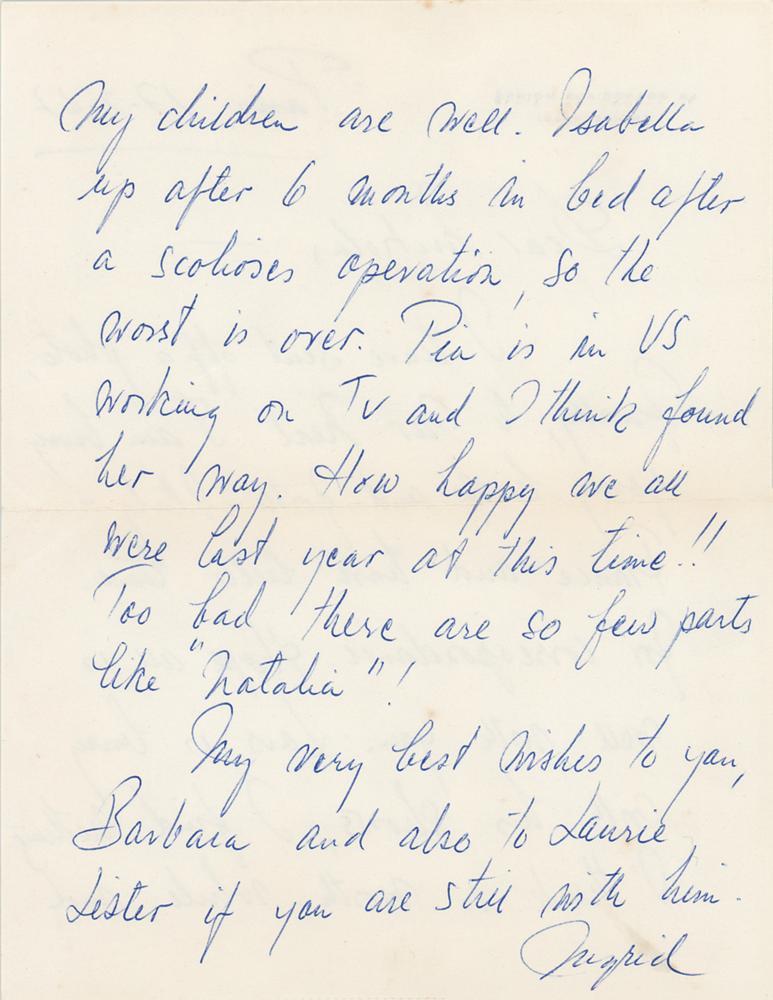 My children are well. Isabella
up after 6 months in bed after
a scolioses operation, so the
worst is over. Pia is in US
working on TV and I think found
her way. How happy we all
were last year at this time!!
Too bad there are so few parts
like "Natalia"!
My very best wishes to you,
Barbara and also to Laurie
Lester if you are still with him.
Ingrid